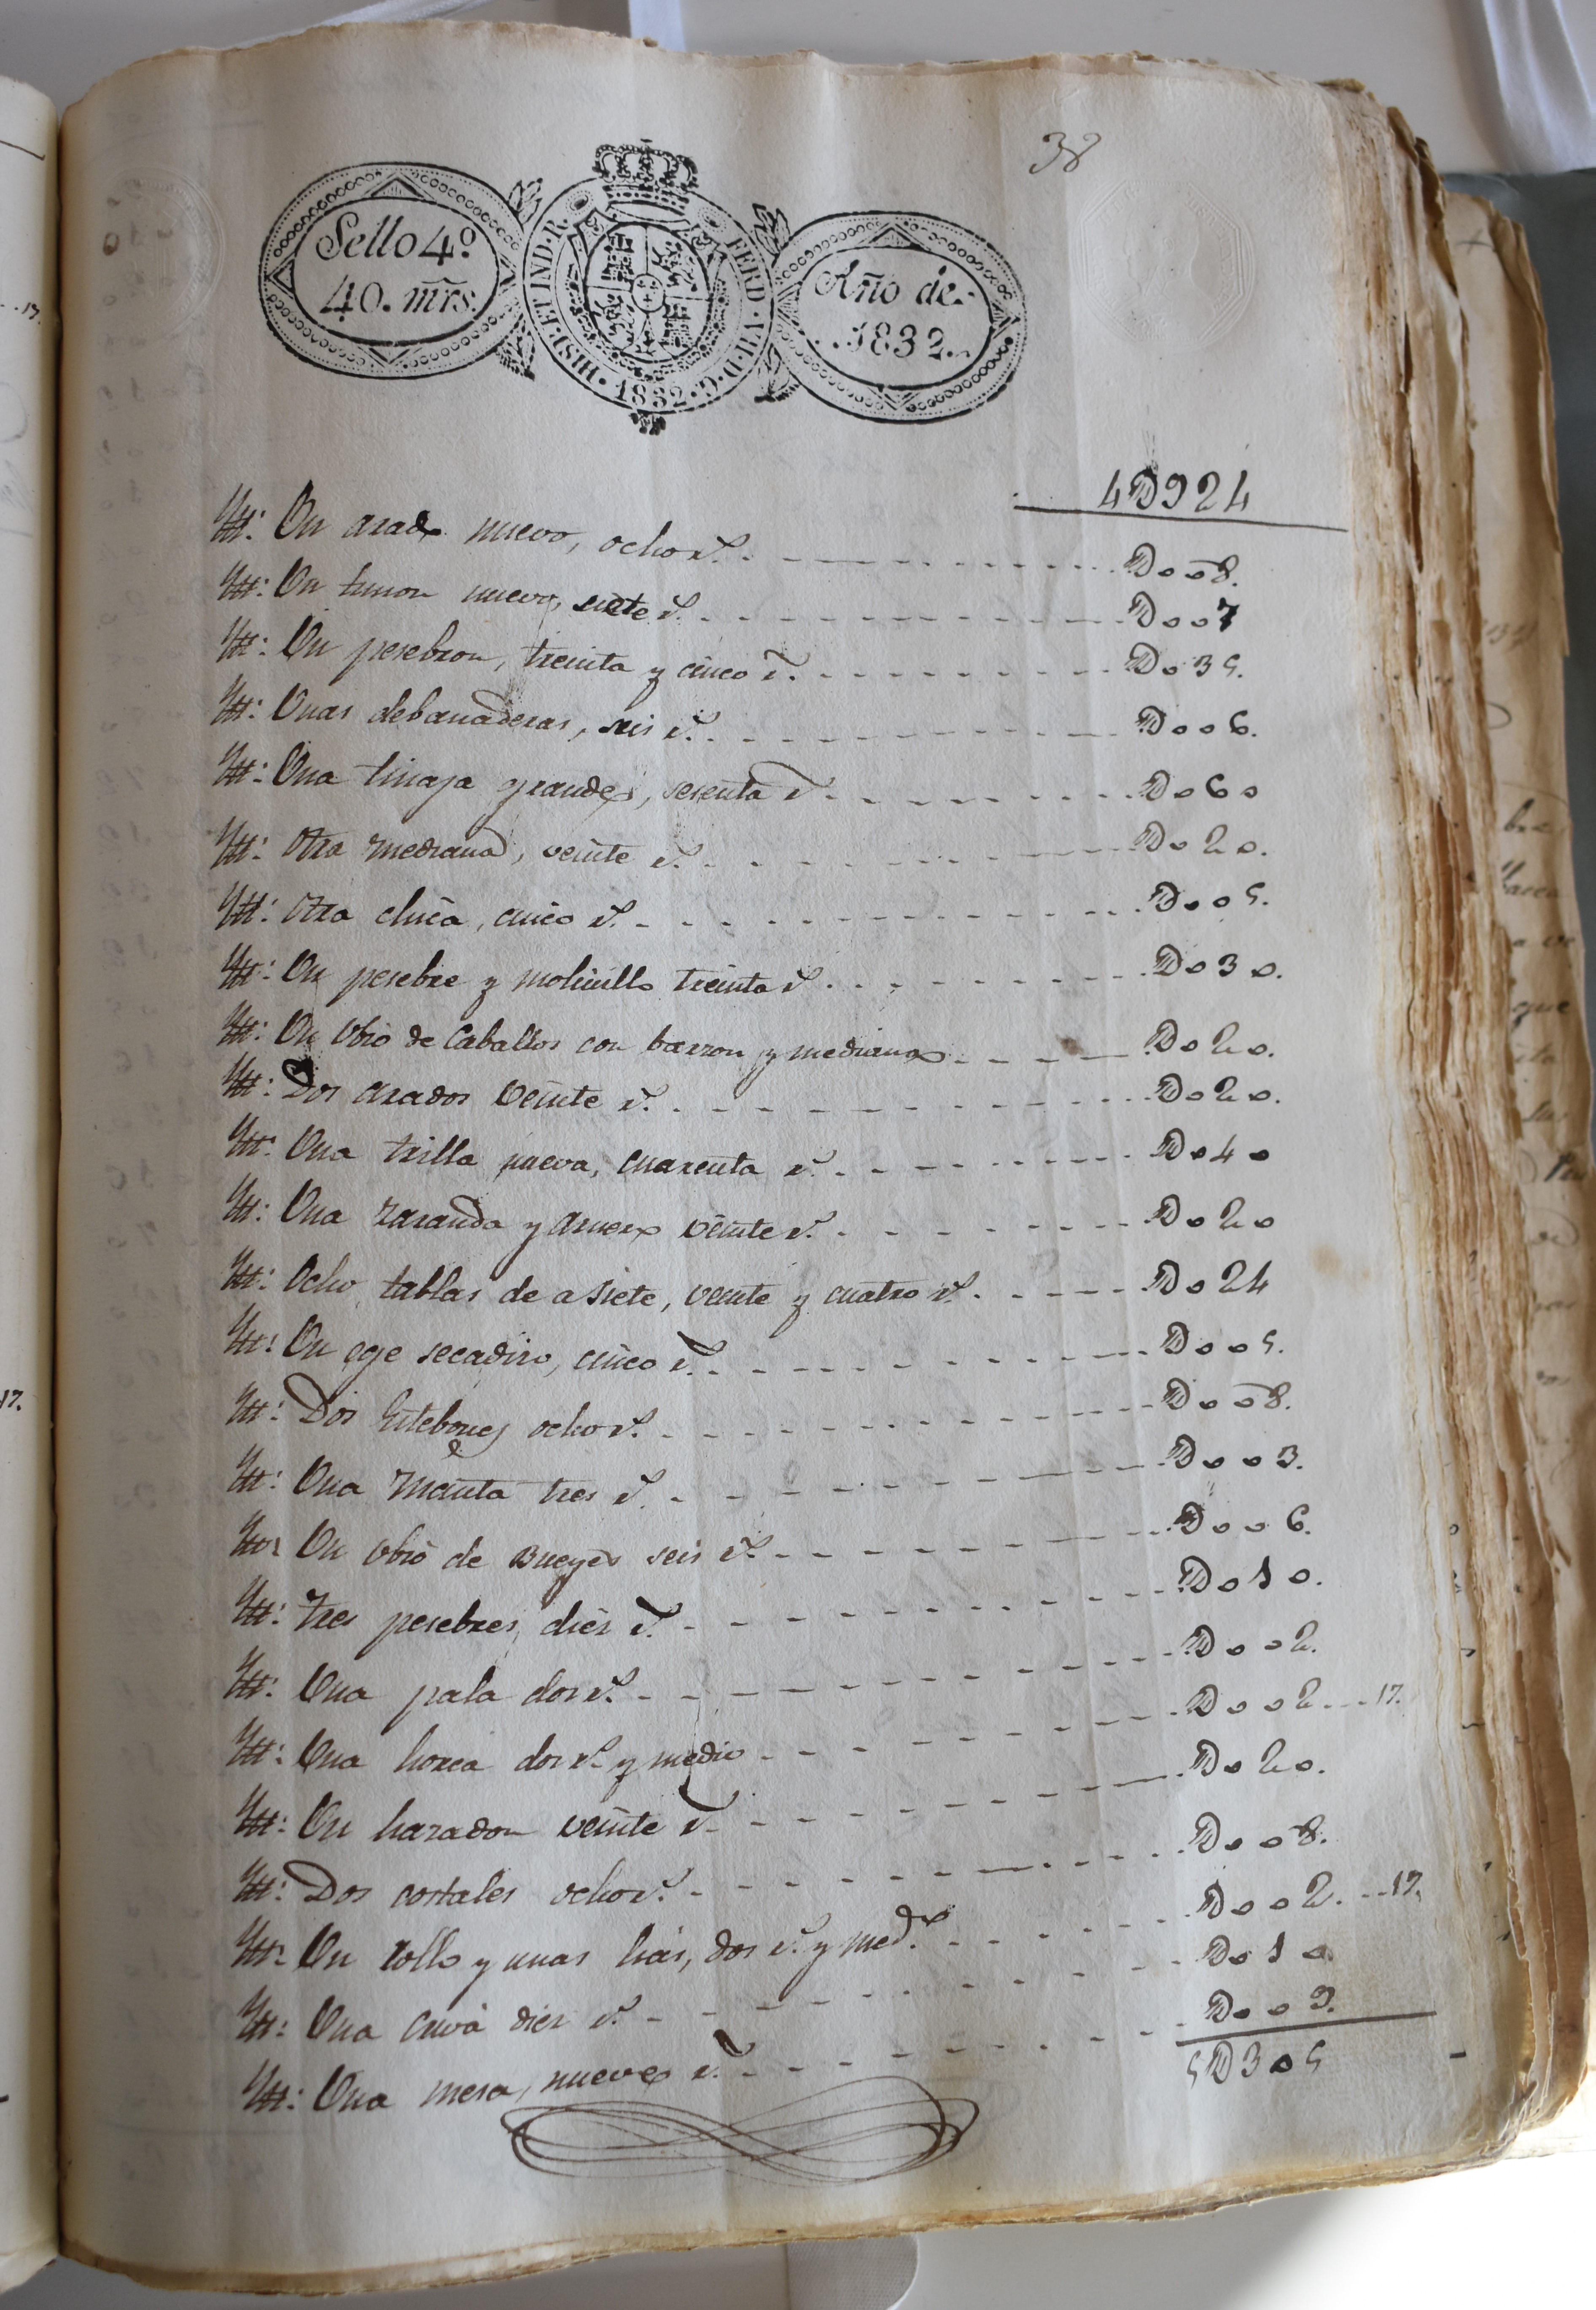 38
Sello 4º
40. mrs.
HISP. ET IND. R. FERD. VII. D. G. 1832
Año de
1832
4D924
Ytt: Un arado nuevo, ocho rs. D008.
Ytt: Un timon nuevo, siete rs. D007
Ytt: Un pesebron, treinta y cinco rs. D035.
Ytt: Unas debanaderas, seis rs. D006.
Ytt: Una tinaja grande, sesenta rs. D060
Ytt: Otra mediana, veinte rs. D020.
Ytt: Otra chica, cinco rs. D005.
Ytt: Un pesebre y molinillo treinta rs. D030.
Ytt: Un Ubio de Caballos con barzon y mediana D020.
Ytt: Dos arados veinte rs. D020.
Ytt: Una trilla nueva, cuarenta rs. D040
Ytt: Una zaranda y arnero veinte rs. D020
Ytt: Ocho tablas de a siete, veinte y cuatro rs. D024
Ytt: Un ege secadizo, cinco rs. D005.
Ytt: Dos Estebones ocho rs. D008.
Ytt: Una Manta tres rs. D003.
Ytt: Un Ubio de Bueyes seis rs. D006.
Ytt: tres pesebres, dies rs. D010.
Ytt: Una pala dos rs. D002.
Ytt: Una horca dos rs. y medio D002 17.
Ytt: Un hazadon veinte rs. D020.
Ytt: Dos costales ocho rs. D008.
Ytt: Un rollo y unas lias, dos rs. y med.o D002. 17.
Ytt: Una criva dies rs. D010
Ytt: Una mesa, nueve rs. D009.
5D305